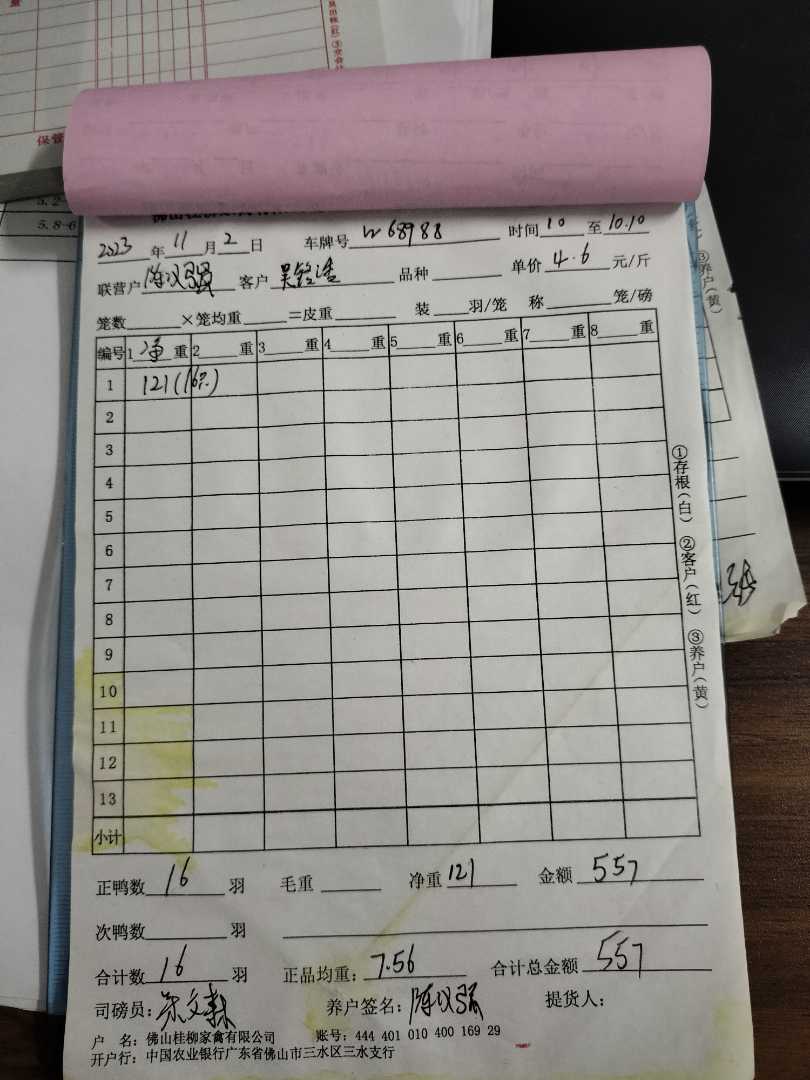 保管
5.2-
5.8-6
2023 年 11 月 2 日 车牌号 W68988 时间 10 至 10.10
联营户 陈汉强 客户 吴铨浩 品种 单价 4.6 元/斤
笼数 ×笼均重 =皮重 装 羽/笼 称 笼/磅
编号 1 净 重 2 重 3 重 4 重 5 重 6 重 7 重 8 重
1 121(16只)
2
3
4
5
6
7
8
9
10
11
12
13
小计
①存根(白) ②客户(红) ③养户(黄)
③养户(黄)
正鸭数 16 羽 毛重 净重 121 金额 557
次鸭数 羽
合计数 16 羽 正品均重: 7.56 合计总金额 557
司磅员: 养户签名: 陈汉强 提货人:
户 名: 佛山桂柳家禽有限公司 账号: 444 401 010 400 169 29
开户行: 中国农业银行广东省佛山市三水区三水支行